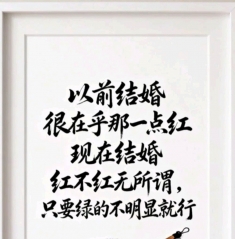 以前结婚
很在乎那一点红
现在结婚
红不红无所谓，
只要绿的不明显就行